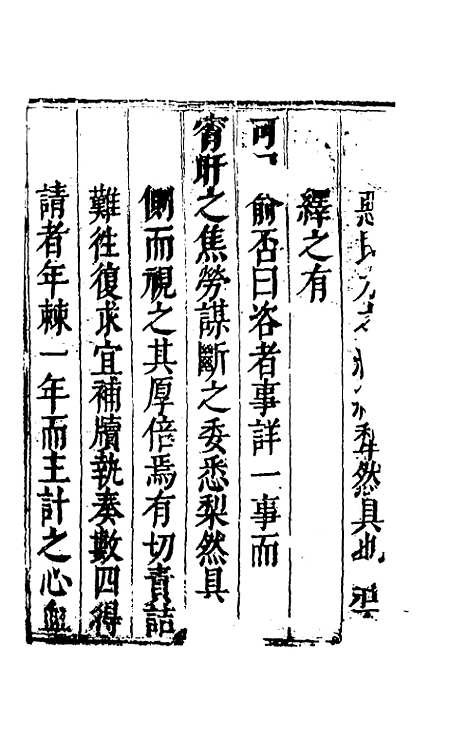 然具
繹之有
俞否曰咨者事詳一事而
宵旰之焦勞謀斷之委悉犁然具
側而視之其厚倍焉有切責詰
難徃復求宜補牘執奏數四得
請者年棘一年而主計之心血